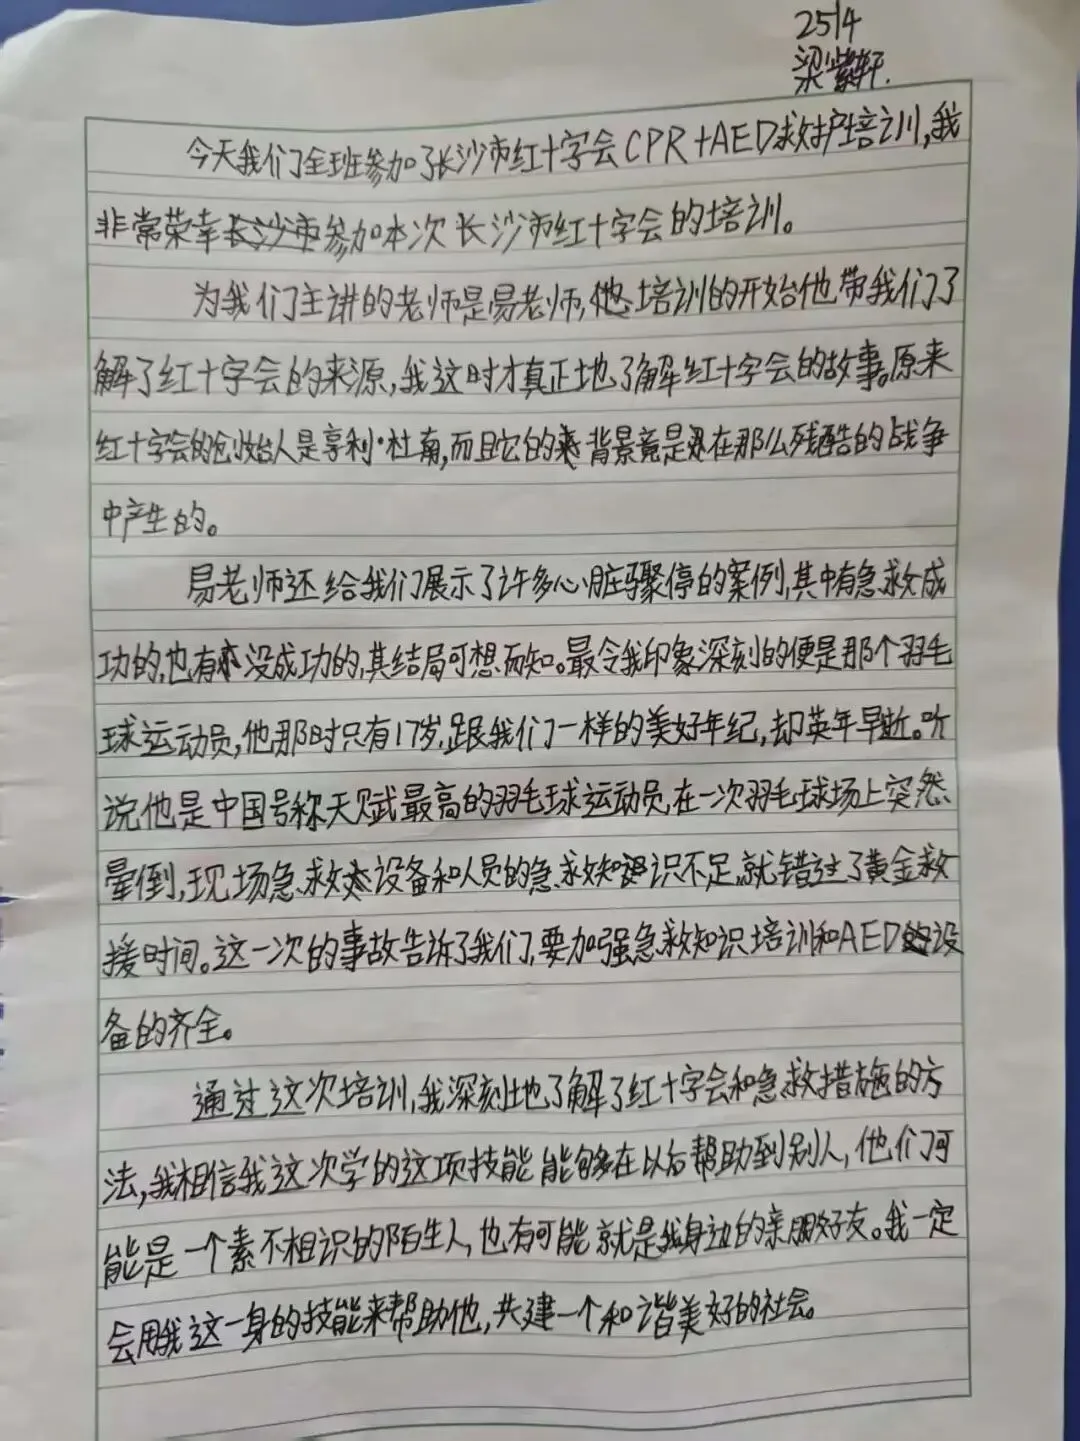 2514
梁紫轩.
今天我们全班参加了长沙市红十字会CPR+AED救护培训,我
非常荣幸参加本次长沙市红十字会的培训。
为我们主讲的老师是易老师,他培训的开始他带我们了
解了红十字会的来源,我这时才真正地了解红十字会的故事。原来
红十字会的创始人是亨利·杜南,而且它的背景竟是在那么残酷的战争
中产生的。
易老师还给我们展示了许多心脏骤停的案例,其中有急救成
功的,也有没成功的,其结局可想而知。最令我印象深刻的便是那个羽毛
球运动员,他那时只有17岁,跟我们一样的美好年纪,却英年早逝。听
说他是中国号称天赋最高的羽毛球运动员,在一次羽毛球场上突然
晕倒,现场急救设备和人员的急救知识不足,就错过了黄金救
援时间。这一次的事故告诉了我们,要加强急救知识培训和AED的设
备的齐全。
通过这次培训,我深刻地了解了红十字会和急救措施的方
法,我相信我这次学的这项技能能够在以后帮助到别人,他们可
能是一个素不相识的陌生人,也有可能就是我身边的亲朋好友。我一定
会用我这一身的技能来帮助他,共建一个和谐美好的社会。